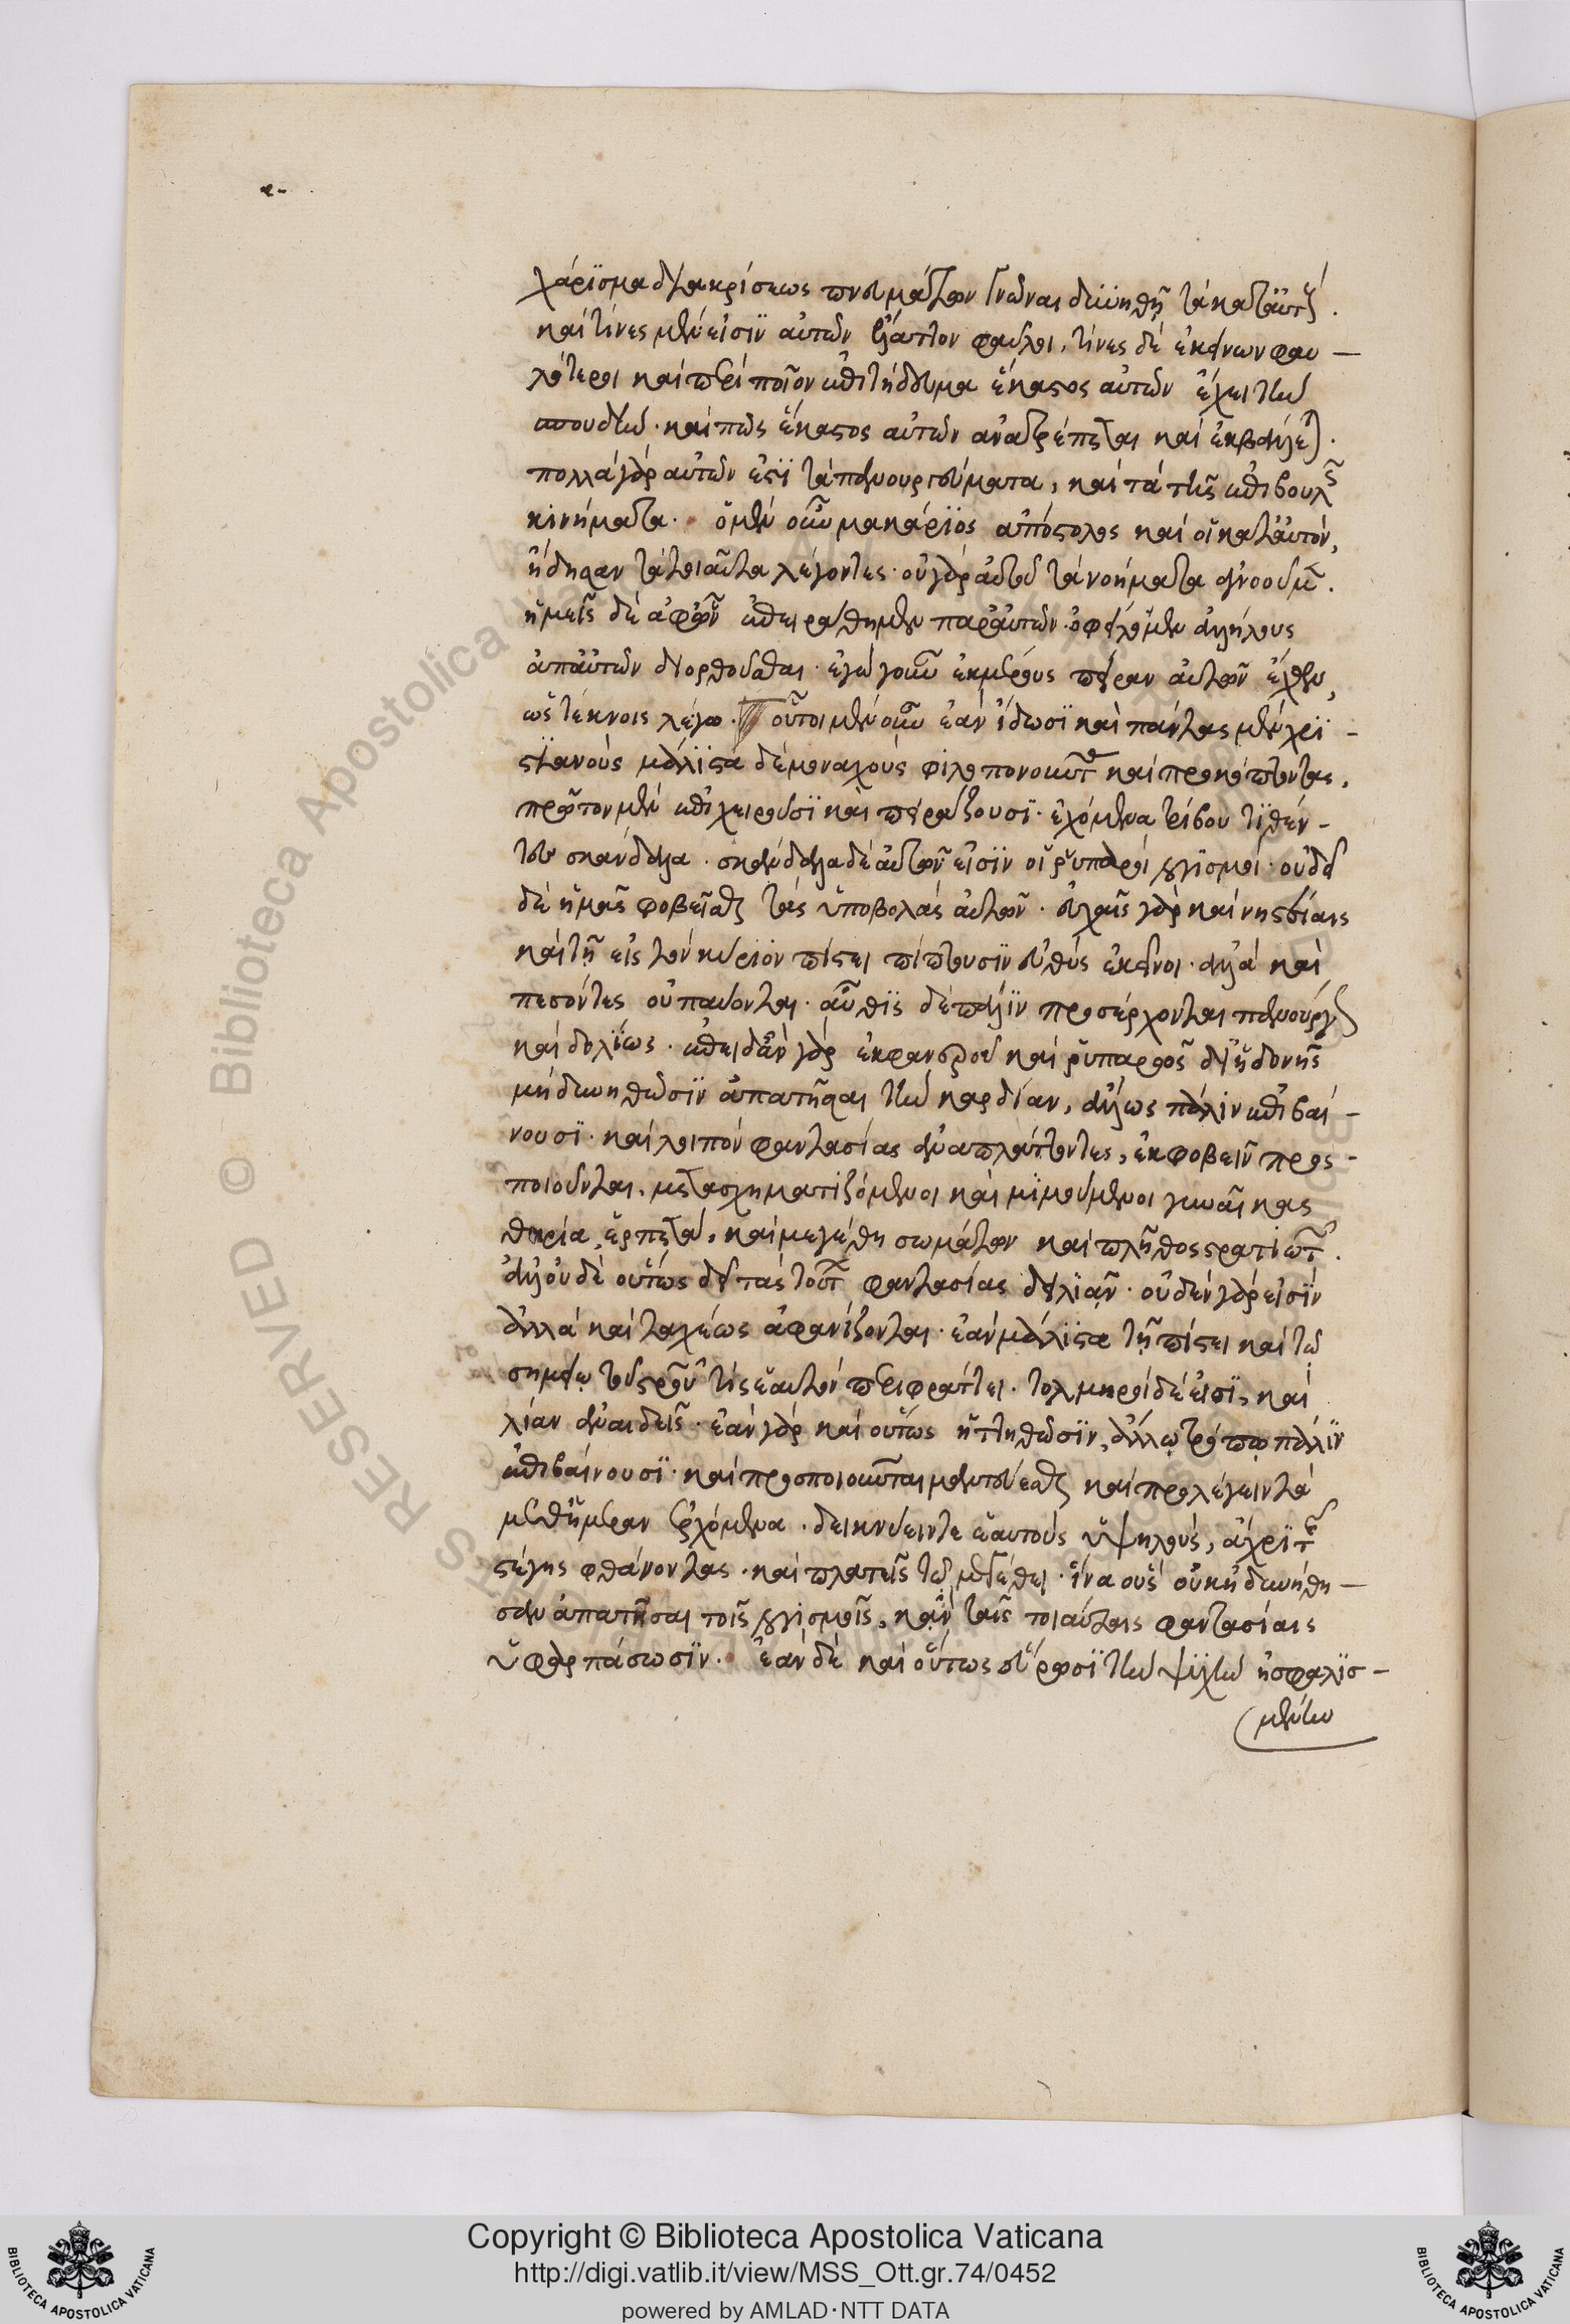 χάρϊσμα διακρίσεως πνευμάτων γνῶναι δϋνηθῇ τὰ κατ' αὐτούς.
καὶ τίνες μὲν εἰσὶν αὐτῶν ἔλαττον φαῦλοι, τίνες δὲ ἐκείνων φαυ —
λότεροι καὶ περὶ ποῖον ἐπιτήδευμα ἕκαστος αὐτῶν ἔχει τὴν
σπουδὴν· καὶ πῶς ἕκαστος αὐτῶν ἀνατρέπεται καὶ ἐκβάλλεται.
πολλὰ γὰρ αὐτῶν ἐστὶ τὰ πανουργεύματα, καὶ τὰ τῆς ἐπιβουλῆς
κινήματα. ὁ μὲν οὖν μακάριος ἀπόστολος καὶ οἱ κατ' αὐτὸν,
ἤδησαν τὰ τοιαῦτα λέγοντες· οὐ γὰρ αὐτοῦ τὰ νοήματα ἀγνοοῦμεν.
ἡμεῖς δὲ ἀφ' ὧν ἐπειράθημεν παρ' αὐτῶν· ὀφείλομεν ἀλλήλους
ἀπ' αὐτῶν διορθοῦσθαι· ἐγὼ γοῦν ἐκ μέρους πεῖραν αὐτῶν ἔχων,
ὡς τέκνοις λέγω. οὗτοι μὲν οὖν ἐὰν ἴδωσϊ καὶ πάντας μὲν χρϊ -
στϊανοὺς μάλϊστα δὲ μοναχοὺς φιλοπονοῦντας καὶ προκόπτοντας,
πρῶτον μὲν ἐπιχειροῦσϊ καὶ πειράζουσϊ· ἐχόμενα τρίβου τϊθέν -
τες σκάνδαλα· σκάνδαλα δὲ αὐτῶν εἰσϊν οἱ ῥυπαροὶ λογϊσμοί· οὐ δεῖ
δὲ ἡμᾶς φοβεῖσθαι τὰς ὑποβολὰς αὐτῶν· εὐχαῖς γὰρ καὶ νηστείαις
καὶ τῇ εἰς τὸν κύριον πίστει πίπτουσϊν εὐθὺς ἐκεῖνοι· ἀλλὰ καὶ
πεσόντες οὐ παύονται· αὖθϊς δὲ πάλϊν προσέρχονται πανούργως
καὶ δολίως· ἐπειδὰν γὰρ ἐκ φανεροῦ καὶ ῥυπαρῶς δι' ἡδονῆς
μὴ δυνηθῶσϊν ἀπατῆσαι τὴν καρδίαν, ἄλλως πάλιν ἐπιβαί -
νουσϊ· καὶ λοιπὸν φαντασίας ἀναπλάττοντες, ἐκφοβεῖν προς -
ποιοῦνται, μετασχηματιζόμενοι καὶ μϊμούμενοι γυναῖκας
θηρία, ἑρπετὰ, καὶ μεγέθη σωμάτων καὶ πλῆθος στρατιωτῶν.
ἀλλ' οὐδὲ οὕτως δεῖ τὰς τούτων φαντασίας δειλϊᾷν· οὐδὲν γὰρ εἰσὶν
ἀλλὰ καὶ ταχέως ἀφανίζονται· ἐὰν μάλϊστα τῇ πίστει καὶ τῷ
σημείῳ τοῦ σταυροῦ τὶς ἑαυτὸν περιφράττει· τολμηροὶ δὲ εἰσϊ, καὶ
λίαν ἀναιδεῖς· ἐὰν γὰρ καὶ οὕτως ἡττηθῶσϊν, ἄλλῳ τρόπῳ πάλϊν
ἐπιβαίνουσϊ· καὶ προσποιοῦνται μαντεύεσθαι καὶ προλέγειν τὰ
μεθ' ἡμέραν ἐρχόμενα· δεικνύειν τε ἑαυτοὺς ὑψηλοὺς, ἄχρϊ τῆς
στέγης φθάνοντας· καὶ πλατεῖς τῷ μεγέθει· ἵνα οὓς οὐκ ἠδυνήθη —
σαν ἀπατῆσαι τοῖς λογισμοῖς, κἂν ταῖς τοιαύταις φαντασίαις
ὑφαρπάσωσϊν. Ἐὰν δὲ καὶ οὕτως εὕρωσϊ τὴν ψϋχὴν ἠσφαλϊσ -
μένην
Copyright © Biblioteca Apostolica Vaticana
http://digi.vatlib.it/view/MSS_Ott.gr.74/0452
powered by AMLAD·NTT DATA
BIBLIOTECA APOSTOLICA VATICANA
BIBLIOTECA APOSTOLICA VATICANA